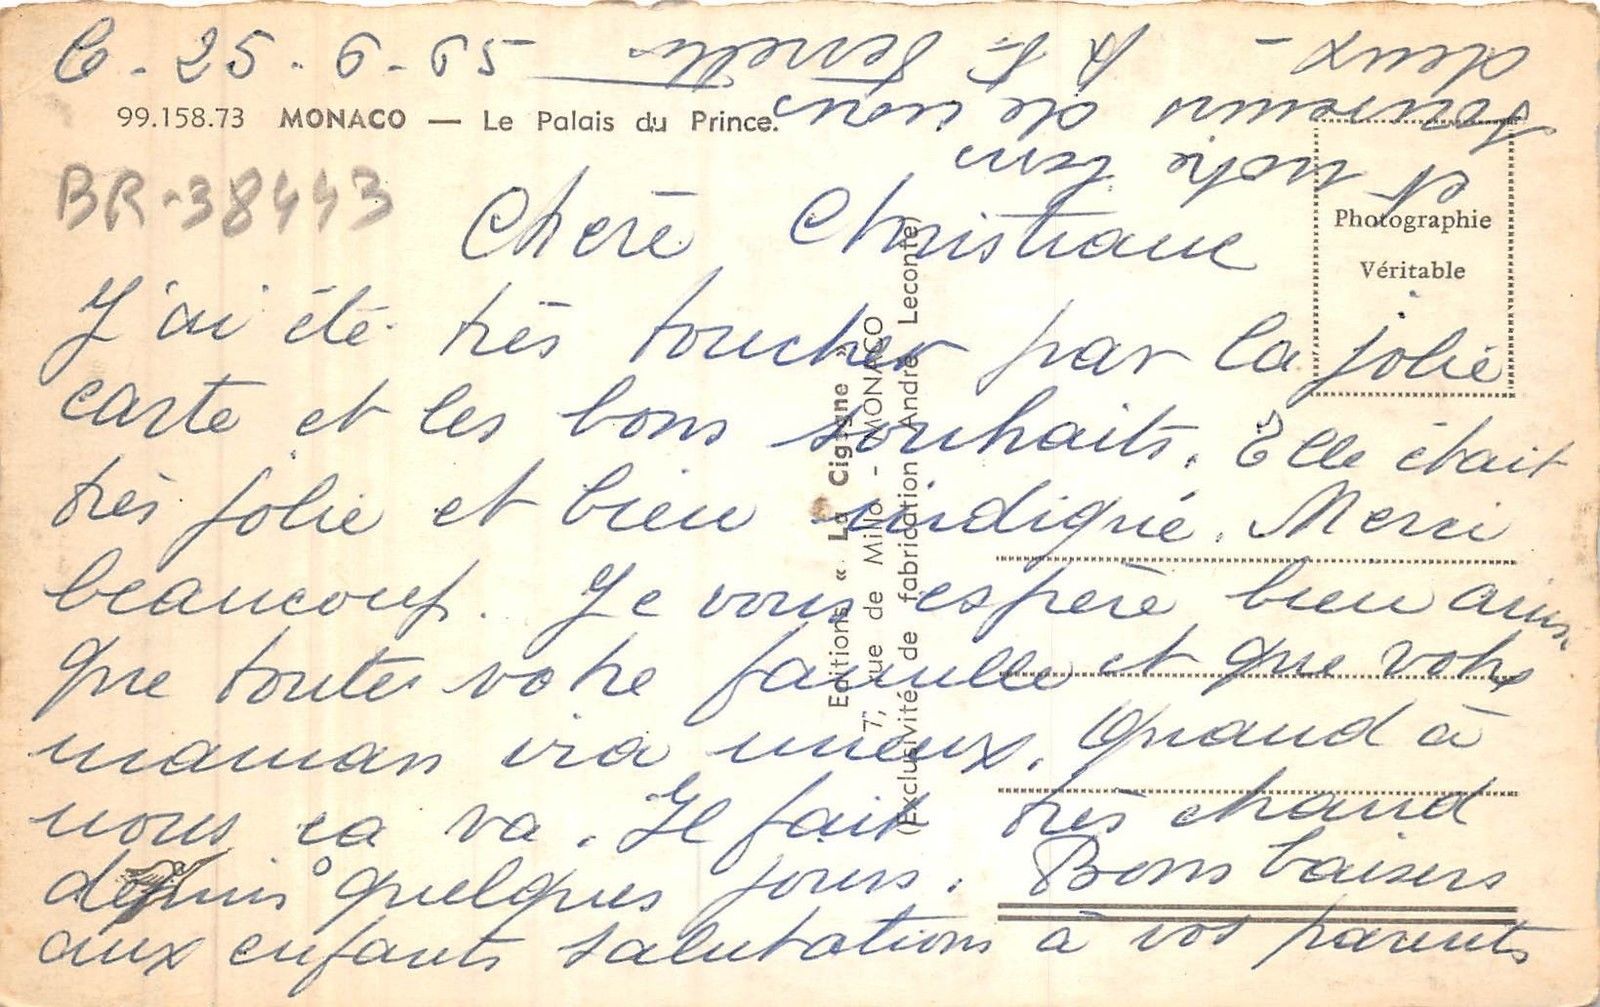 C. 25.6.65
99.158.73 MONACO — Le Palais du Prince.
BR-38443
Photographie
Véritable
Chère Christiane
J'ai été très toucher par la jolie
carte et les bons souhaits. Elle était
très jolie et bien indiqué. Merci
beaucoup. Je vous espère bien ainsi
que toutes votre famille et que votre
maman ira mieux. Quand à
nous ca va. Il fait très chaud
depuis quelques jours. Bons baisers
aux enfants salutations à vos parents
et votre
souvenirs de nous
deux -
Editions « La Cigogne »
7, rue de Millo - MONACO
(Exclusivité de fabrication André Leconte)